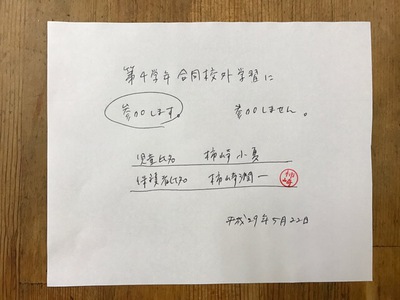 第4学年合同校外学習に
参加します。 参加しません。
児童氏名 柿崎小夏
保護者氏名 柿崎潤一 柿崎
平成29年5月22日